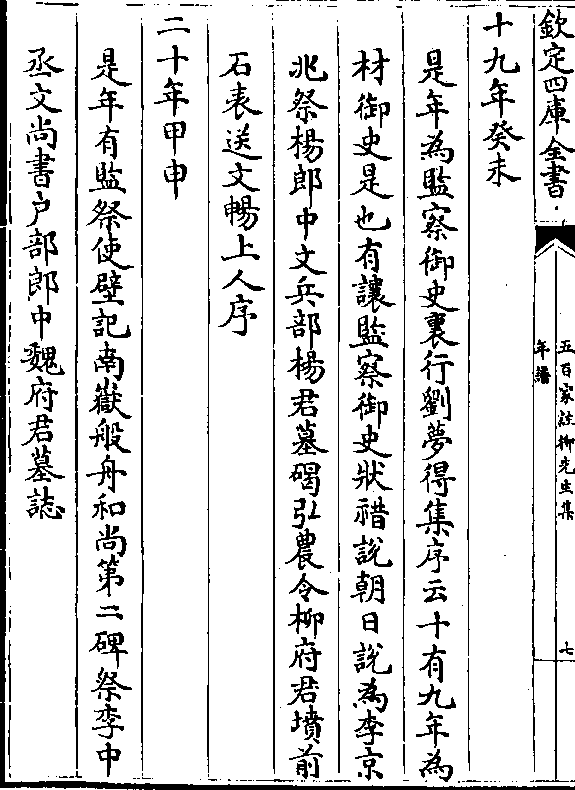 欽定四庫全書
五百家註柳先生集
年譜
七
十九年癸未
是年為監察御史裏行劉夢得集序云十有九年為
材御史是也有讓監察御史狀䄍說朝日說為李京
兆祭楊郎中文兵部楊君墓碣弘農令柳府君墳前
石表送文暢上人序
二十年甲申
是年有監祭使壁記南嶽般舟和尚第二碑祭李中
丞文尚書户部郎中魏府君墓誌